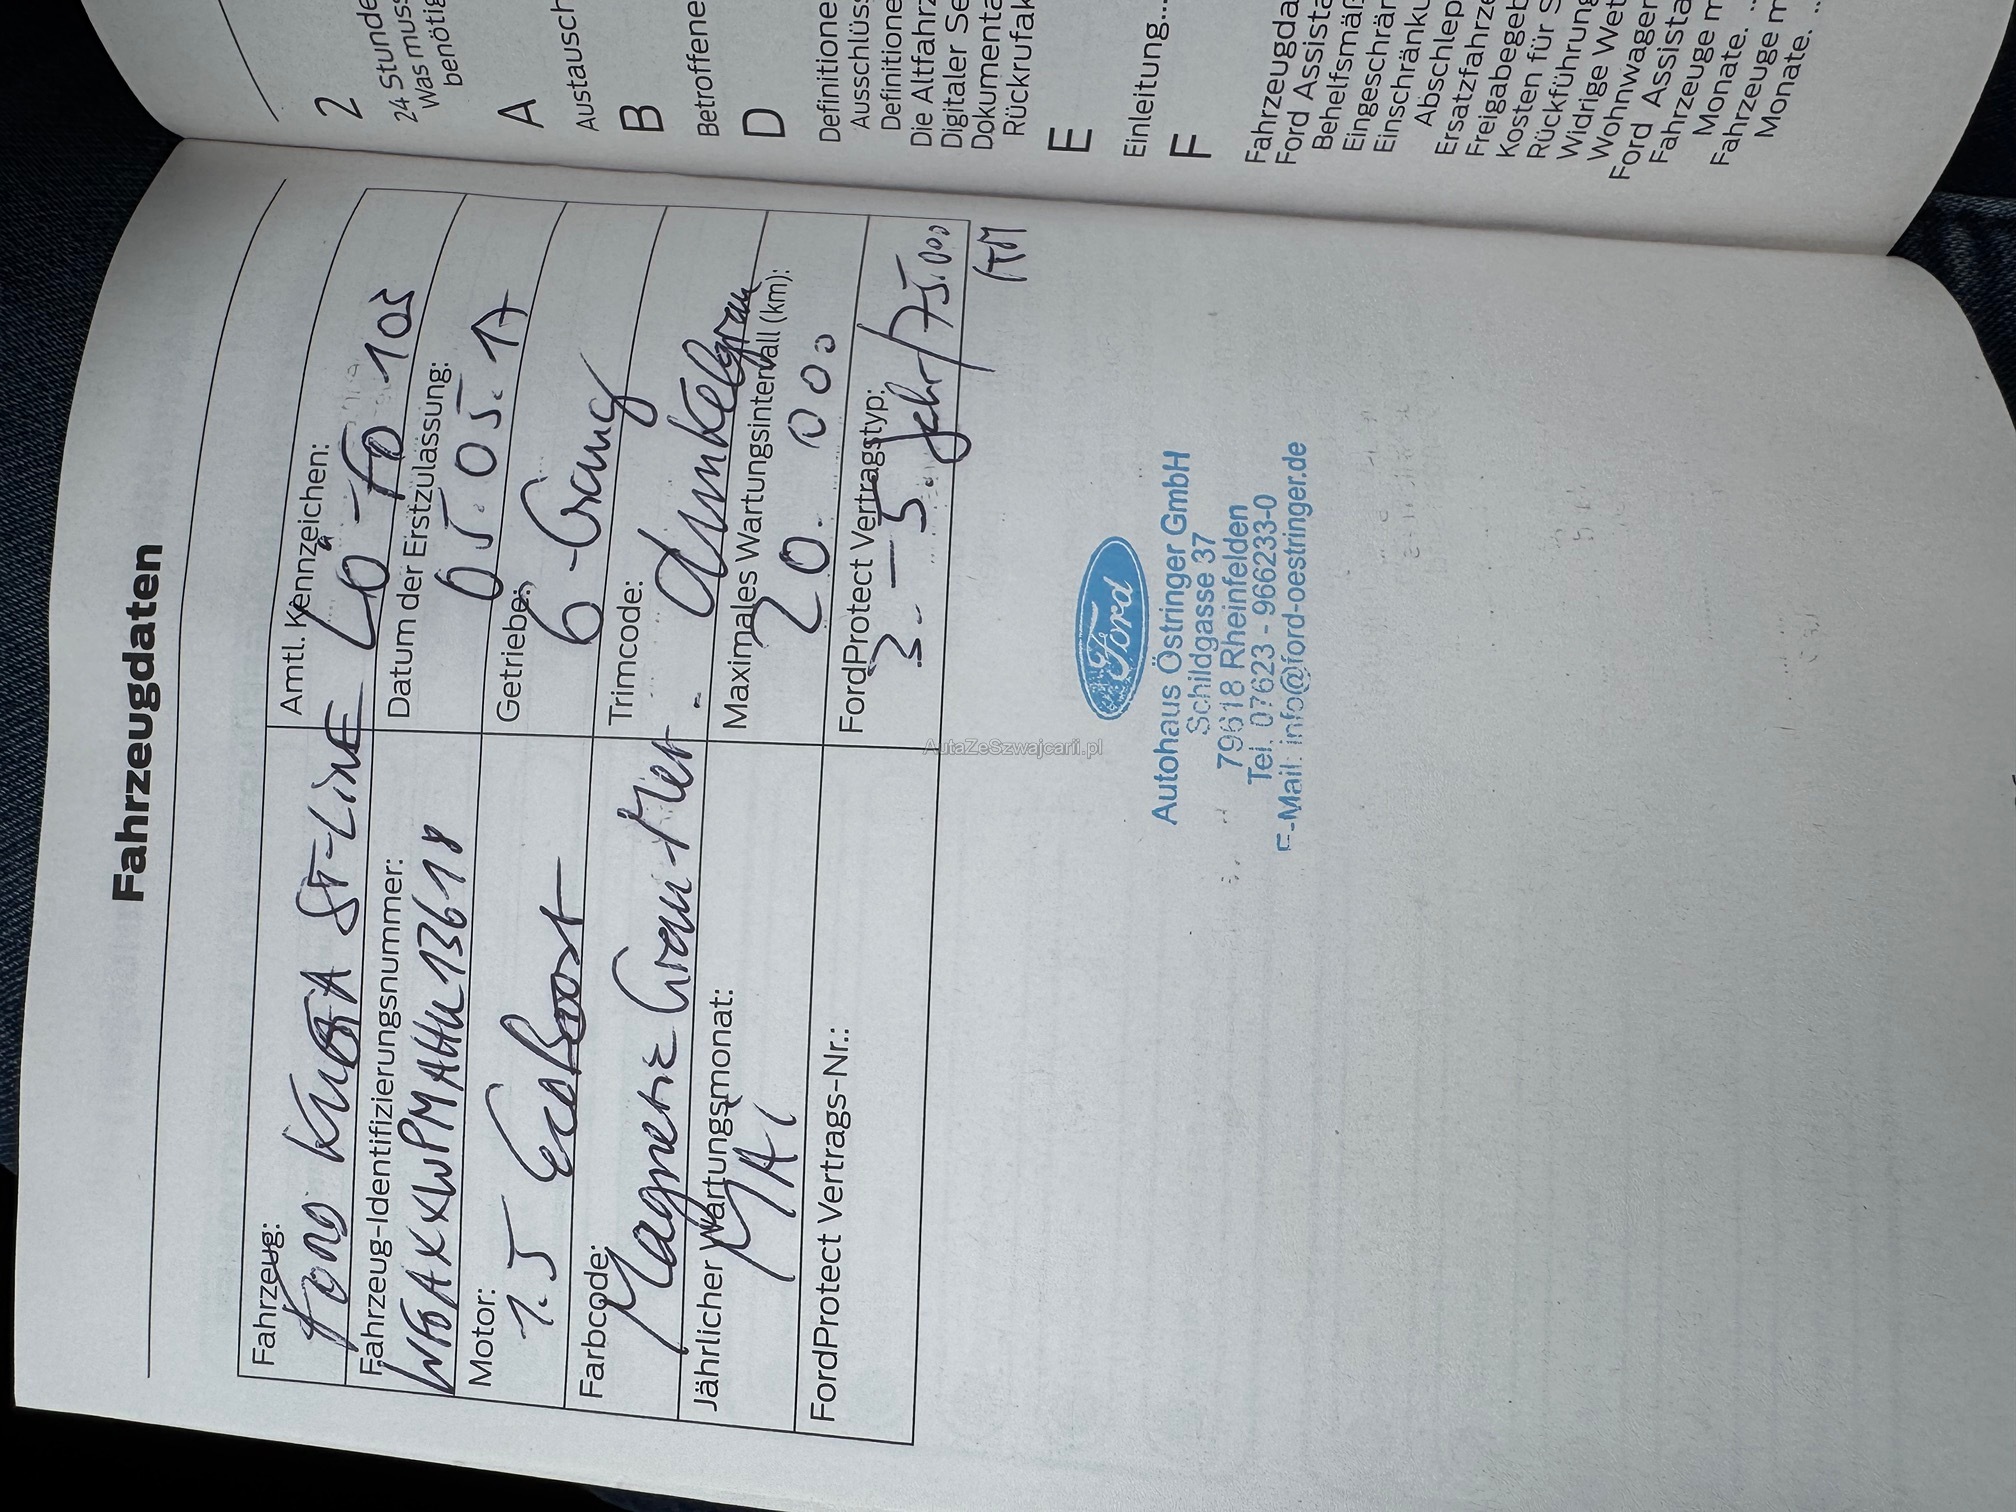 Fahrzeugdaten
Fahrzeug:
FORD KUGA ST-LINE
Amtl. Kennzeichen:
LÖ-FO 105
Fahrzeug-Identifizierungsnummer:
Datum der Erstzulassung:
05.05.17
Motor:
1.5 EcoBoost
Getriebe:
6-Gang
Farbcode:
Magnetic Grau Met.
Trimcode:
dunkelgrau
Jährlicher Wartungsmonat:
MAI
Maximales Wartungsintervall (km):
20.000
FordProtect Vertrags-Nr.:
FordProtect Vertragstyp:
3.-5. Jahr/75.000
KM
Ford
Autohaus Östringer GmbH
Schildgasse 37
79618 Rheinfelden
Tel. 07623 - 966233-0
E-Mail: info@ford-oestringer.de
AutaZeSzwajcarii.pl
2
24 Stunde
Was muss
benötig
A
Austausch
B
Betroffene
D
Definitione
Ausschlüss
Definitione
Die Altfahrz
Digitaler Se
Dokumenta
Rückrufak
E
Einleitung...
F
Fahrzeugda
Ford Assista
Behelfsmäß
Eingeschrän
Einschränku
Abschlepp
Ersatzfahrze
Freigabegeb
Kosten für S
Rückführung
Widrige Wet
Wohnwagen
Ford Assista
Fahrzeuge m
Monate. ..
Fahrzeuge m
Monate. ..